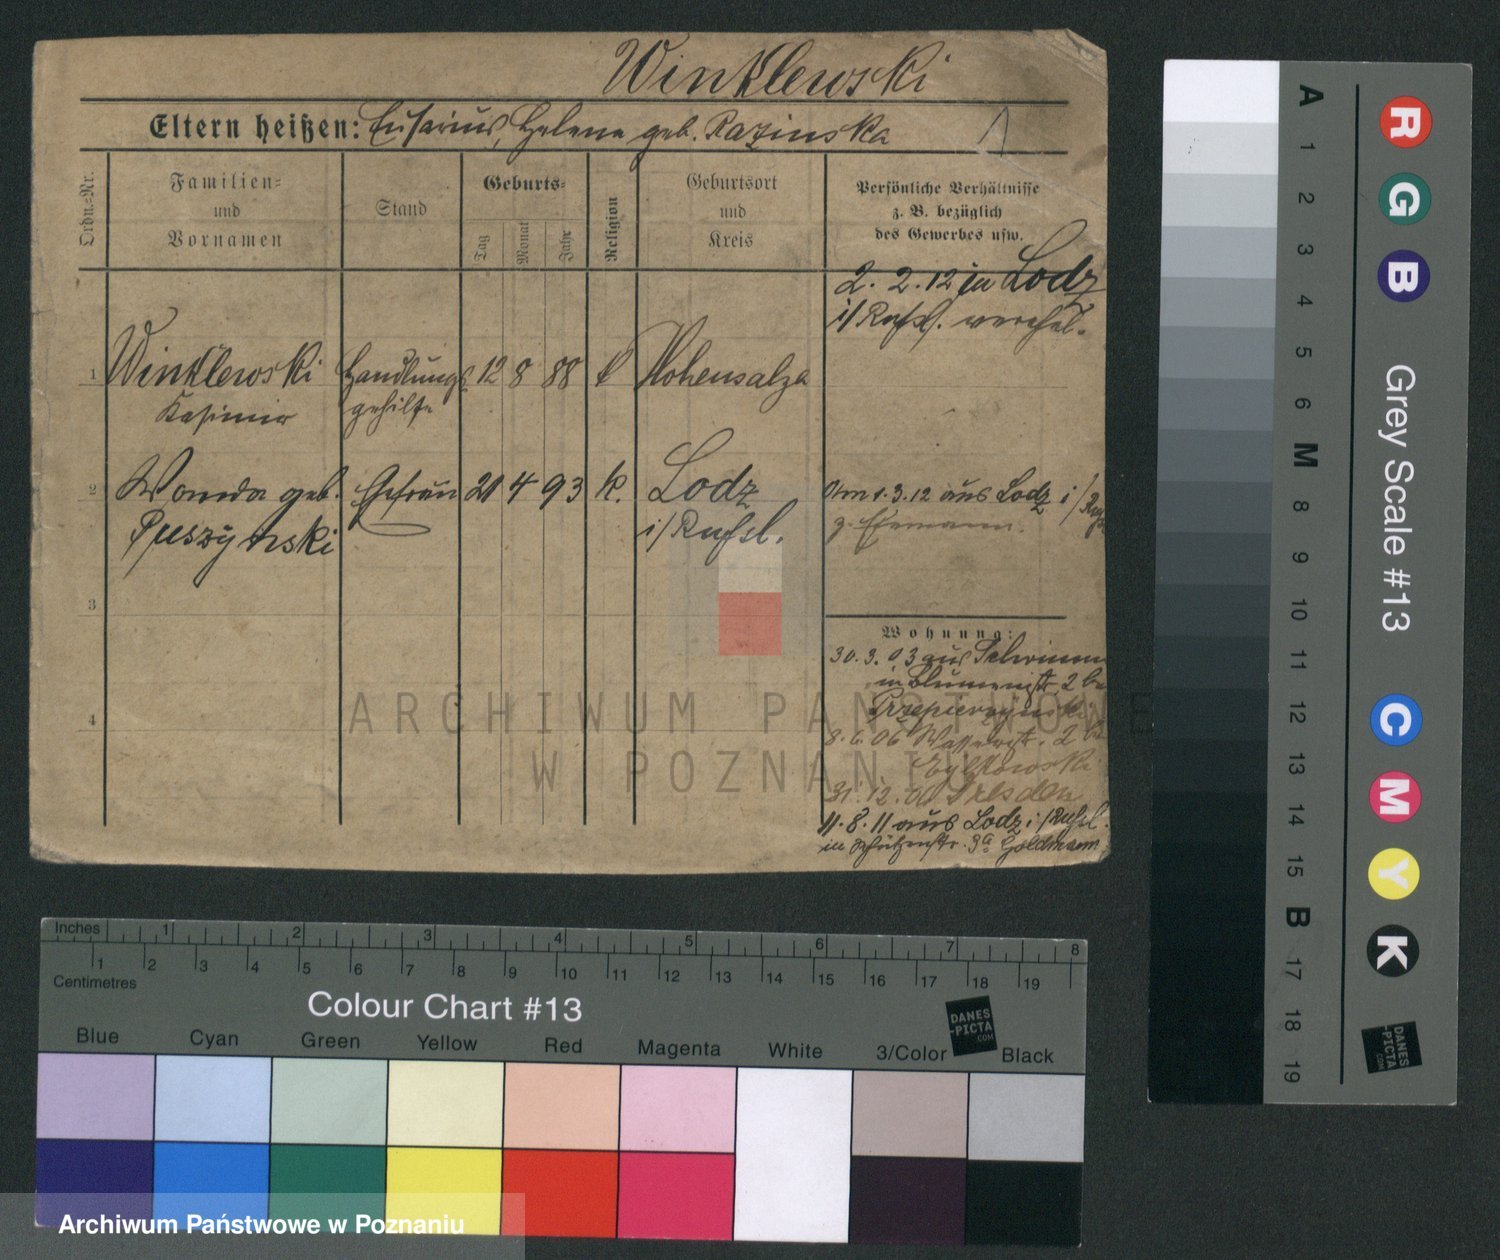 Winklewski
Eltern heißen: Eusarius, Helene geb. Razinska
Ordn.-Nr.
Familien-
und
Vornamen
Stand
Geburts-
Tag
Monat
Jahr
Religion
Geburtsort
und
Kreis
Persönliche Verhältnisse
z. B. bezüglich
des Gewerbes usw.
2. 2. 12 in Lodz
i/Rußl. verehel.
1 Winklewski Handlungs 12 8 88 k Hohensalza
Kasimir gehilfe
2 Wanda geb. Ehefrau 21 4 93 k. Lodz
Puszynski i/Rußl.
Am 1.3.12 aus Lodz i/Rußl
z. Ehemann.
3
4
Wohnung:
30. 3. 03 aus
in Blumenstr. 2 bei
8. 6. 06 2 bei
31. 12. Dresden
11. 8. 11 aus Lodz i/Rußl.
in Schützenstr. 9a Goldmann
ARCHIWUM PAŃSTWOWE
W POZNANIU
A 1 2 3 4 5 6 M 8 9 10 11 12 13 14 15 B 17 18 19
Grey Scale #13
R G B C M Y K
DANES
-PICTA
.COM
Inches 1 2 3 4 5 6 7 8
Centimetres 1 2 3 4 5 6 7 8 9 10 11 12 13 14 15 16 17 18 19
Colour Chart #13
DANES
-PICTA
.COM
Blue Cyan Green Yellow Red Magenta White 3/Color Black
Archiwum Państwowe w Poznaniu